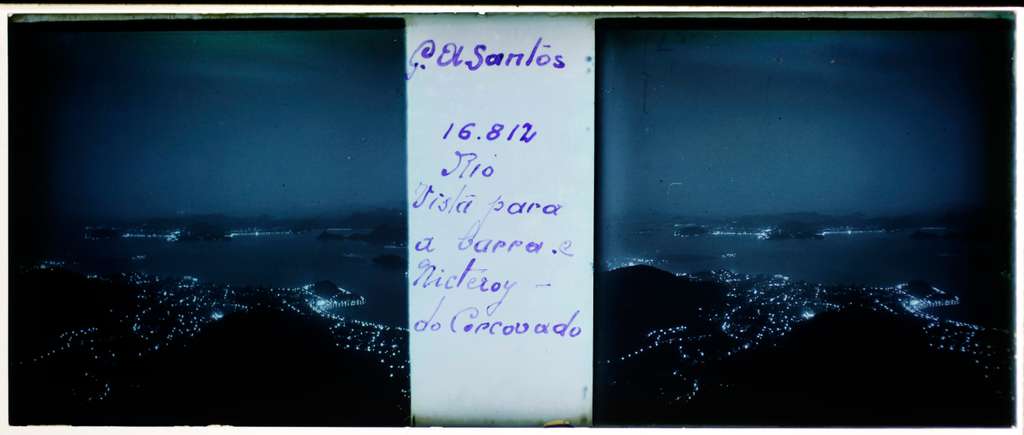 G. A. Santos
16.812
Rio
Vista para
a barra e
Nicteroy -
do Corcovado